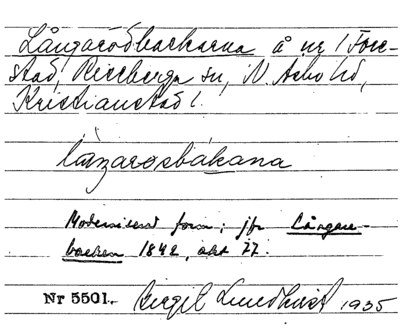 Långarödbackarna å nr 1 Fore-
stad, Riseberga sn, N. Åsbo hd,
Kristianstad l.
långarosbákana
Moderniserad form; jfr Långaro-
backen 1842, akt 77.
Nr 5501. Birgit Lundkvist 1935